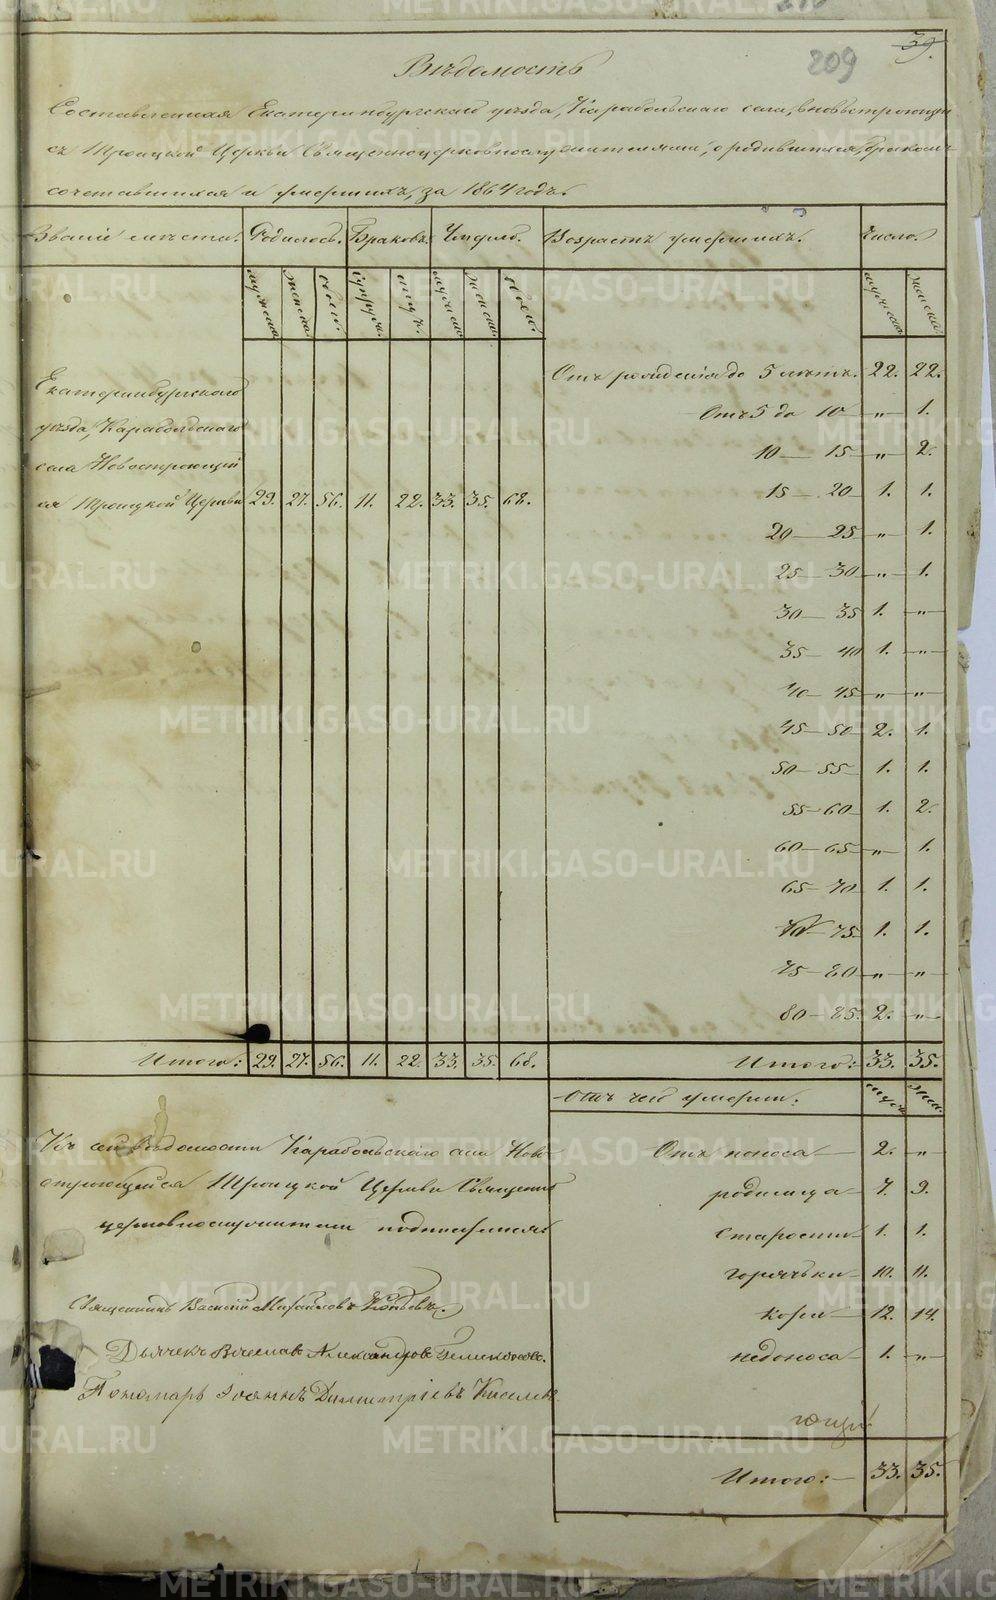 39.
209
Вѣдомость
Составленная Екатеринбургскаго уѣзда, Карабольскаго села,
Троицкой Церкви Священноцерковнослужителями, о родившихся, бракомъ
сочетавшихся и умершихъ, за 1864 годъ.
Званіе мѣста. Родилось. Браковъ. Умерло. Возрастъ умершихъ. Число.
мужеска женска обоего мужеска женска обоего мужеска женска
Отъ рожденія до 5 лѣтъ. 22. 22.
Екатеринбургскаго
Отъ 5 до 10 „ 1.
уѣзда, Карабольскаго
10 — 15 „ 2.
села Новостроющей
ся Троицкой Церкви 29. 27. 56. 11. 22. 33. 35. 68.
15 — 20 1. 1.
20 — 25 „ 1.
25 — 30 „ 1.
30 — 35 1. „
35 — 40 1. „
40 — 45 „ „
45 — 50 2. 1.
50 — 55 1. 1.
55 — 60 1. 2.
60 — 65 „ 1.
65 — 70 1. 1.
70 — 75 1. 1.
75 — 80 „ „
80 — 85. 2. „
Итого: 29. 27. 56. 11. 22. 33. 35. 68. Итого: 33. 35.
Отъ чего умерли: муж. жен.
Къ сей вѣдомости Карабольскаго села Ново
строющейся Троицкой Церкви Священно
церковнослужители подписались
Отъ поноса 2. „
родимца 7. 9.
старости 1. 1.
горячки 10. 11.
кори 12. 14.
недоноса 1. „
Священникъ Василій
Дьячекъ Вячеслав Александров
Пономарь Іоаннъ Димитріевъ Киселевъ
ющей
Итого: 33. 35.
METRIKI.GASO-URAL.RU